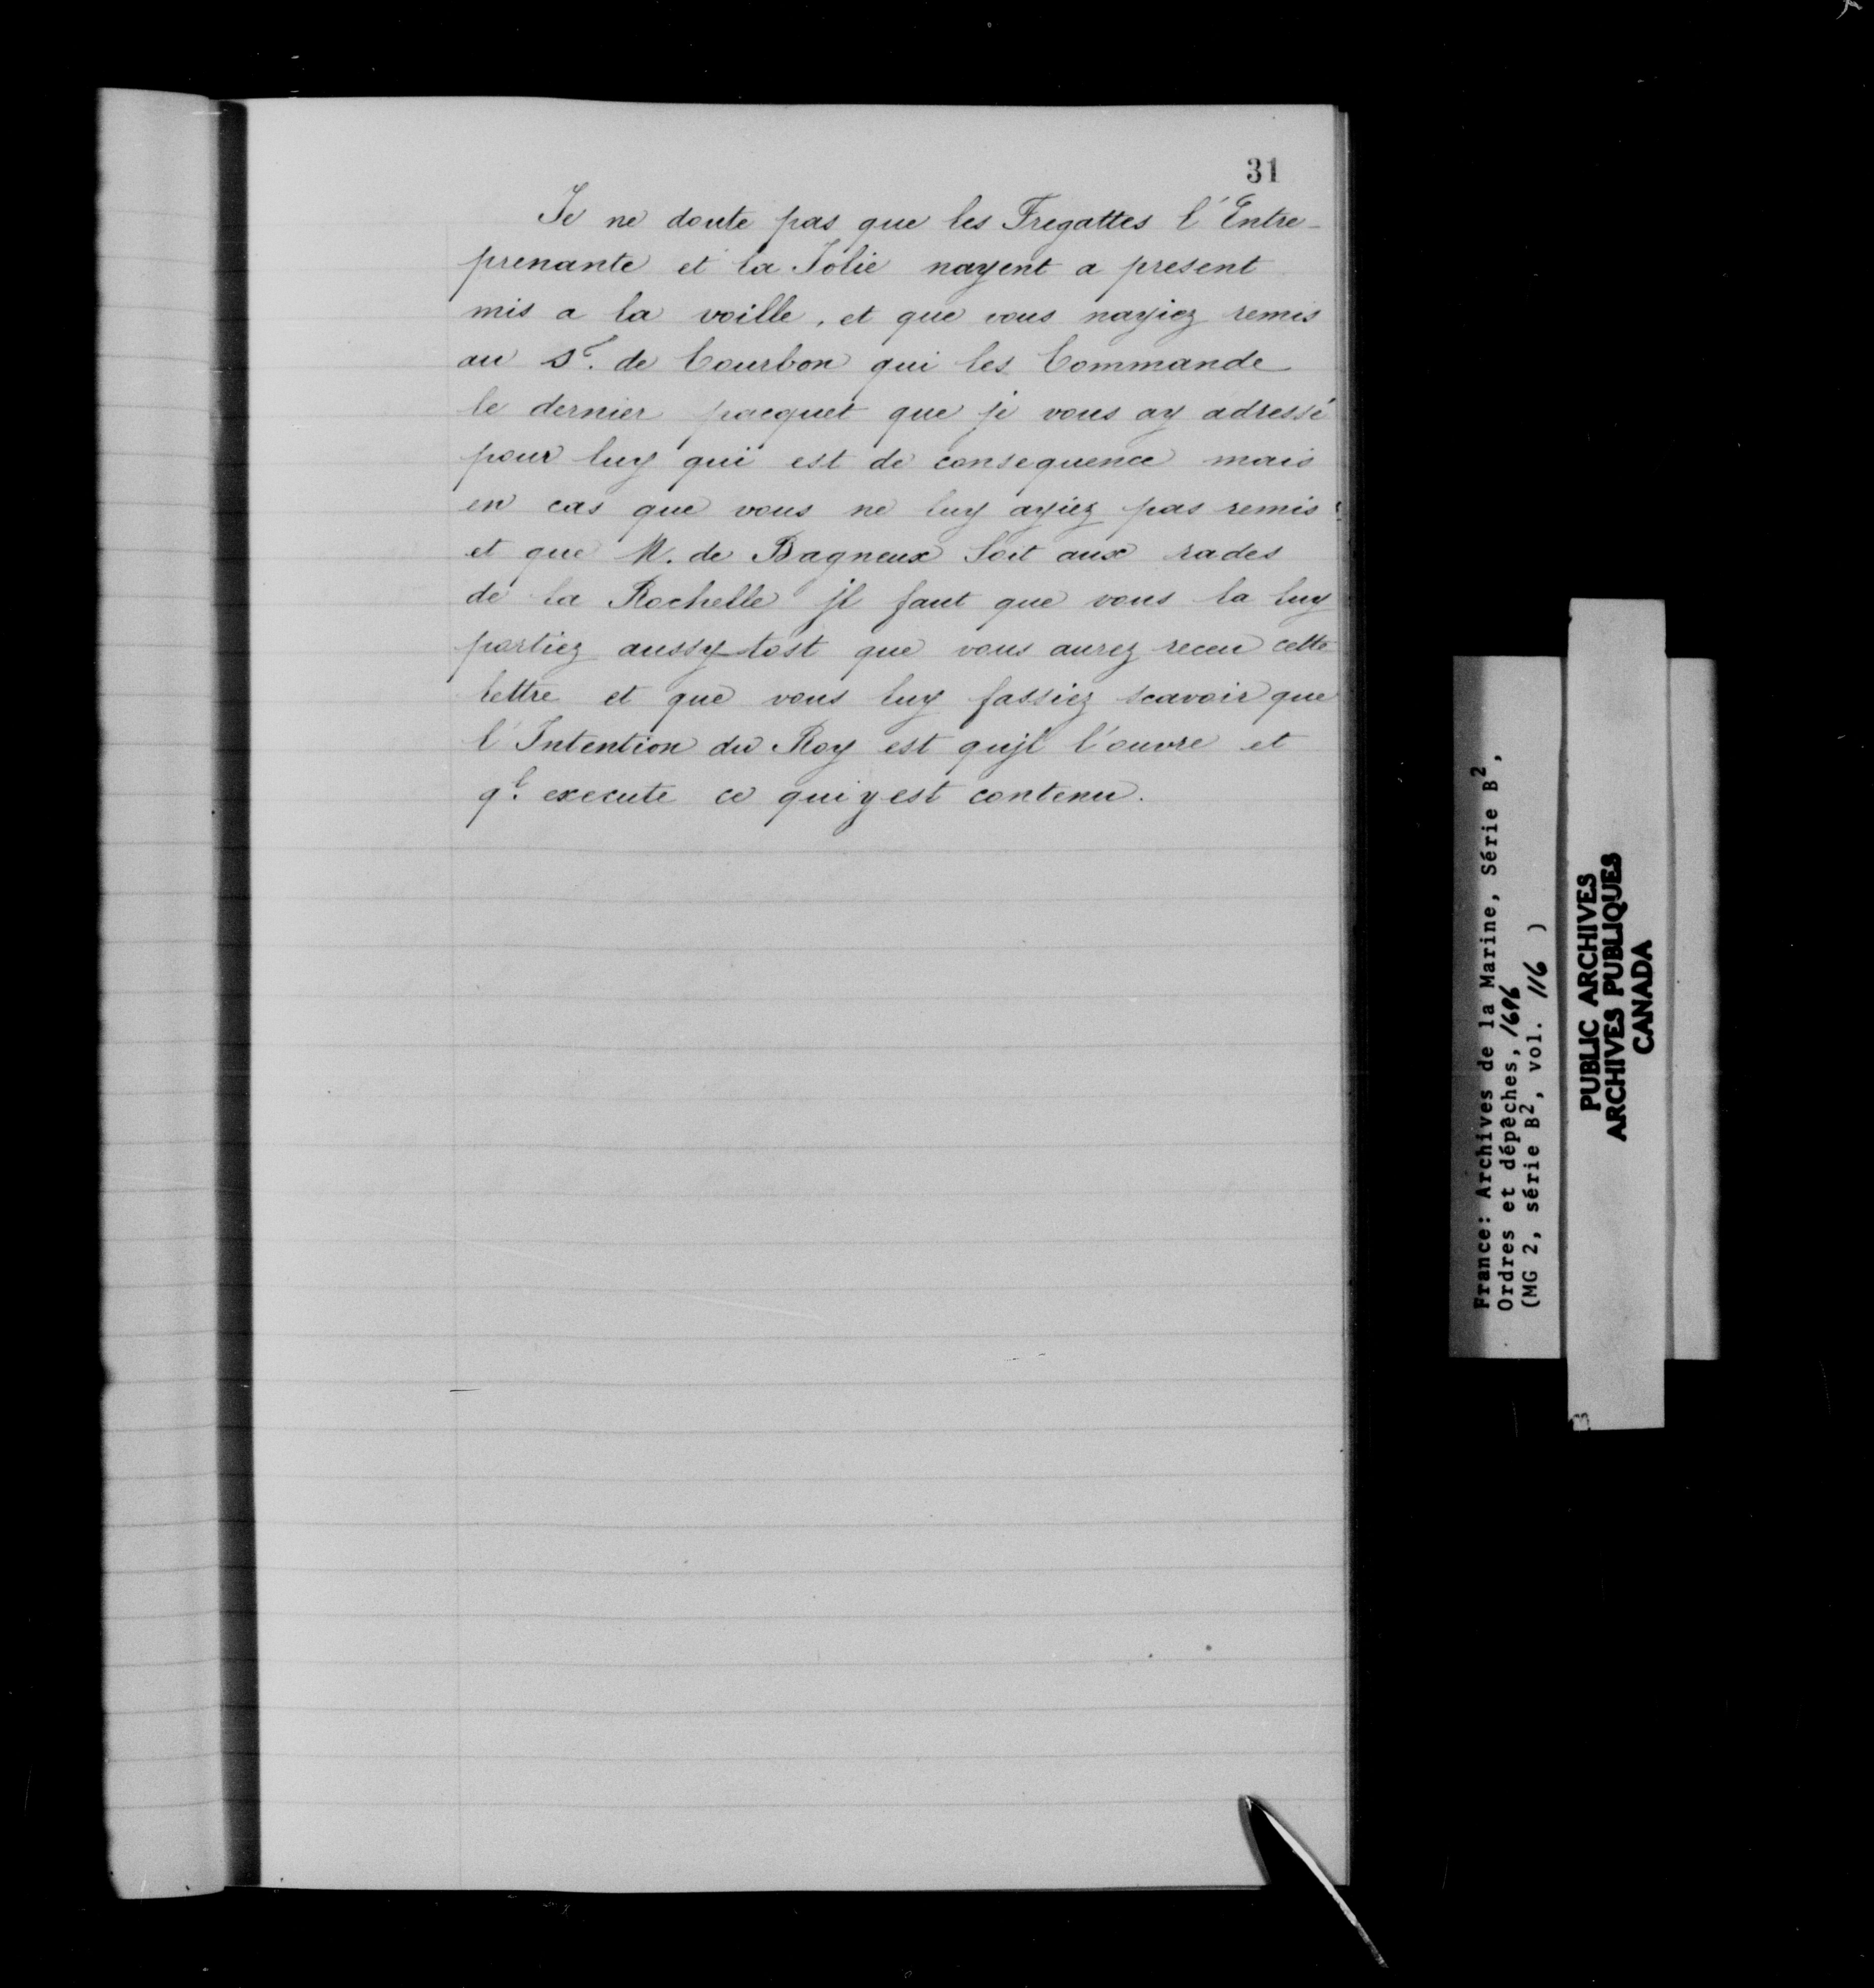 31
Je ne doute pas que les Fregattes l'Entre-
prenante et la Jolie nayent a present
mis a la voille, et que vous nayiez remis
au Sr. de Courbon qui les Commande
le dernier pacquet que je vous ay adressé
pour luy qui est de consequence mais
en cas que vous ne luy ayiez pas remis
et que M. de Bagneux soit aux rades
de la Rochelle jl faut que vous la luy
portiez aussytost que vous aurez receu cette
lettre et que vous luy fassiez scavoir que
l'Intention du Roy est qujl l'ouvre et
ql. execute ce qui y est contenu.
France: Archives de la Marine, Série B2,
Ordres et dépêches, 1696
(MG 2, série B2, vol. 116 )
PUBLIC ARCHIVES
ARCHIVES PUBLIQUES
CANADA